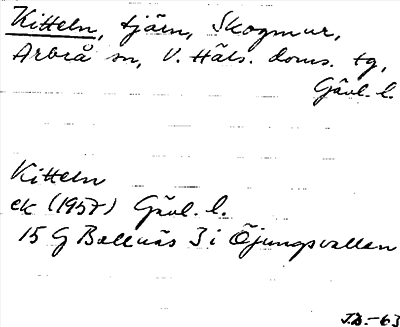 Kitteln, tjärn, Skogmur,
Arbrå sn, V. Häls. doms. tg,
Gävl. l.
Kitteln
ek (1957) Gävl. l.
15 G Bollnäs 3 i Öjungsvallen
J.D.-63